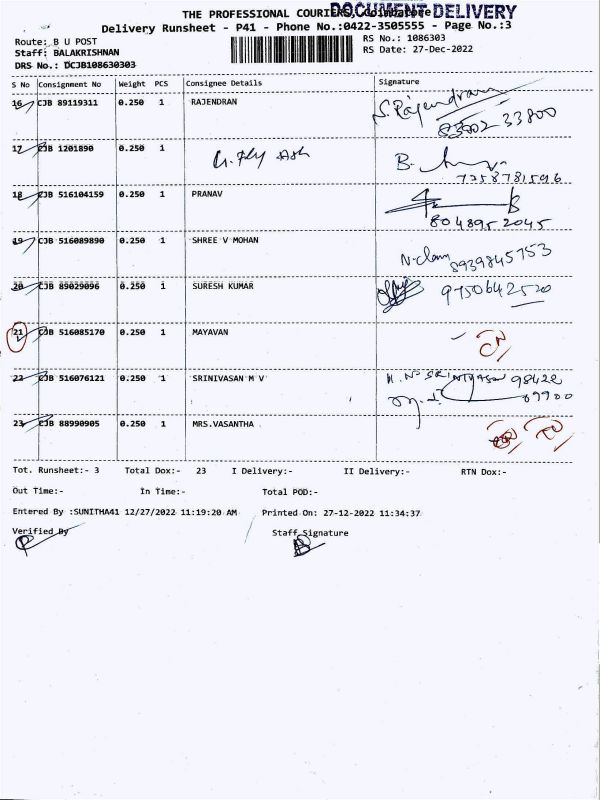 THE PROFESSIONAL COURIERS, Coimbatore
DOCUMENT DELIVERY
Delivery Runsheet - P41 - Phone No.:0422-3505555 - Page No.:3
Route: B U POST
Staff: BALAKRISHNAN
DRS No.: DCJB108630303
RS No.: 1086303
RS Date: 27-Dec-2022
S No Consignment No Weight PCS Consignee Details Signature
16 CJB 89119311 0.250 1 RAJENDRAN S. Rajendran
83002 33800
17 CJB 1201890 0.250 1
7258781596
18 CJB 516104159 0.250 1 PRANAV
8048952045
19 CJB 516089890 0.250 1 SHREE V MOHAN
8939845753
20 CJB 89029096 0.250 1 SURESH KUMAR 9750642520
21 CJB 516085170 0.250 1 MAYAVAN
22 CJB 516076121 0.250 1 SRINIVASAN M V 98422
09900
23 CJB 88990905 0.250 1 MRS.VASANTHA
Tot. Runsheet:- 3 Total Dox:- 23 I Delivery:- II Delivery:- RTN Dox:-
Out Time:- In Time:- Total POD:-
Entered By :SUNITHA41 12/27/2022 11:19:20 AM Printed On: 27-12-2022 11:34:37
Verified By Staff Signature